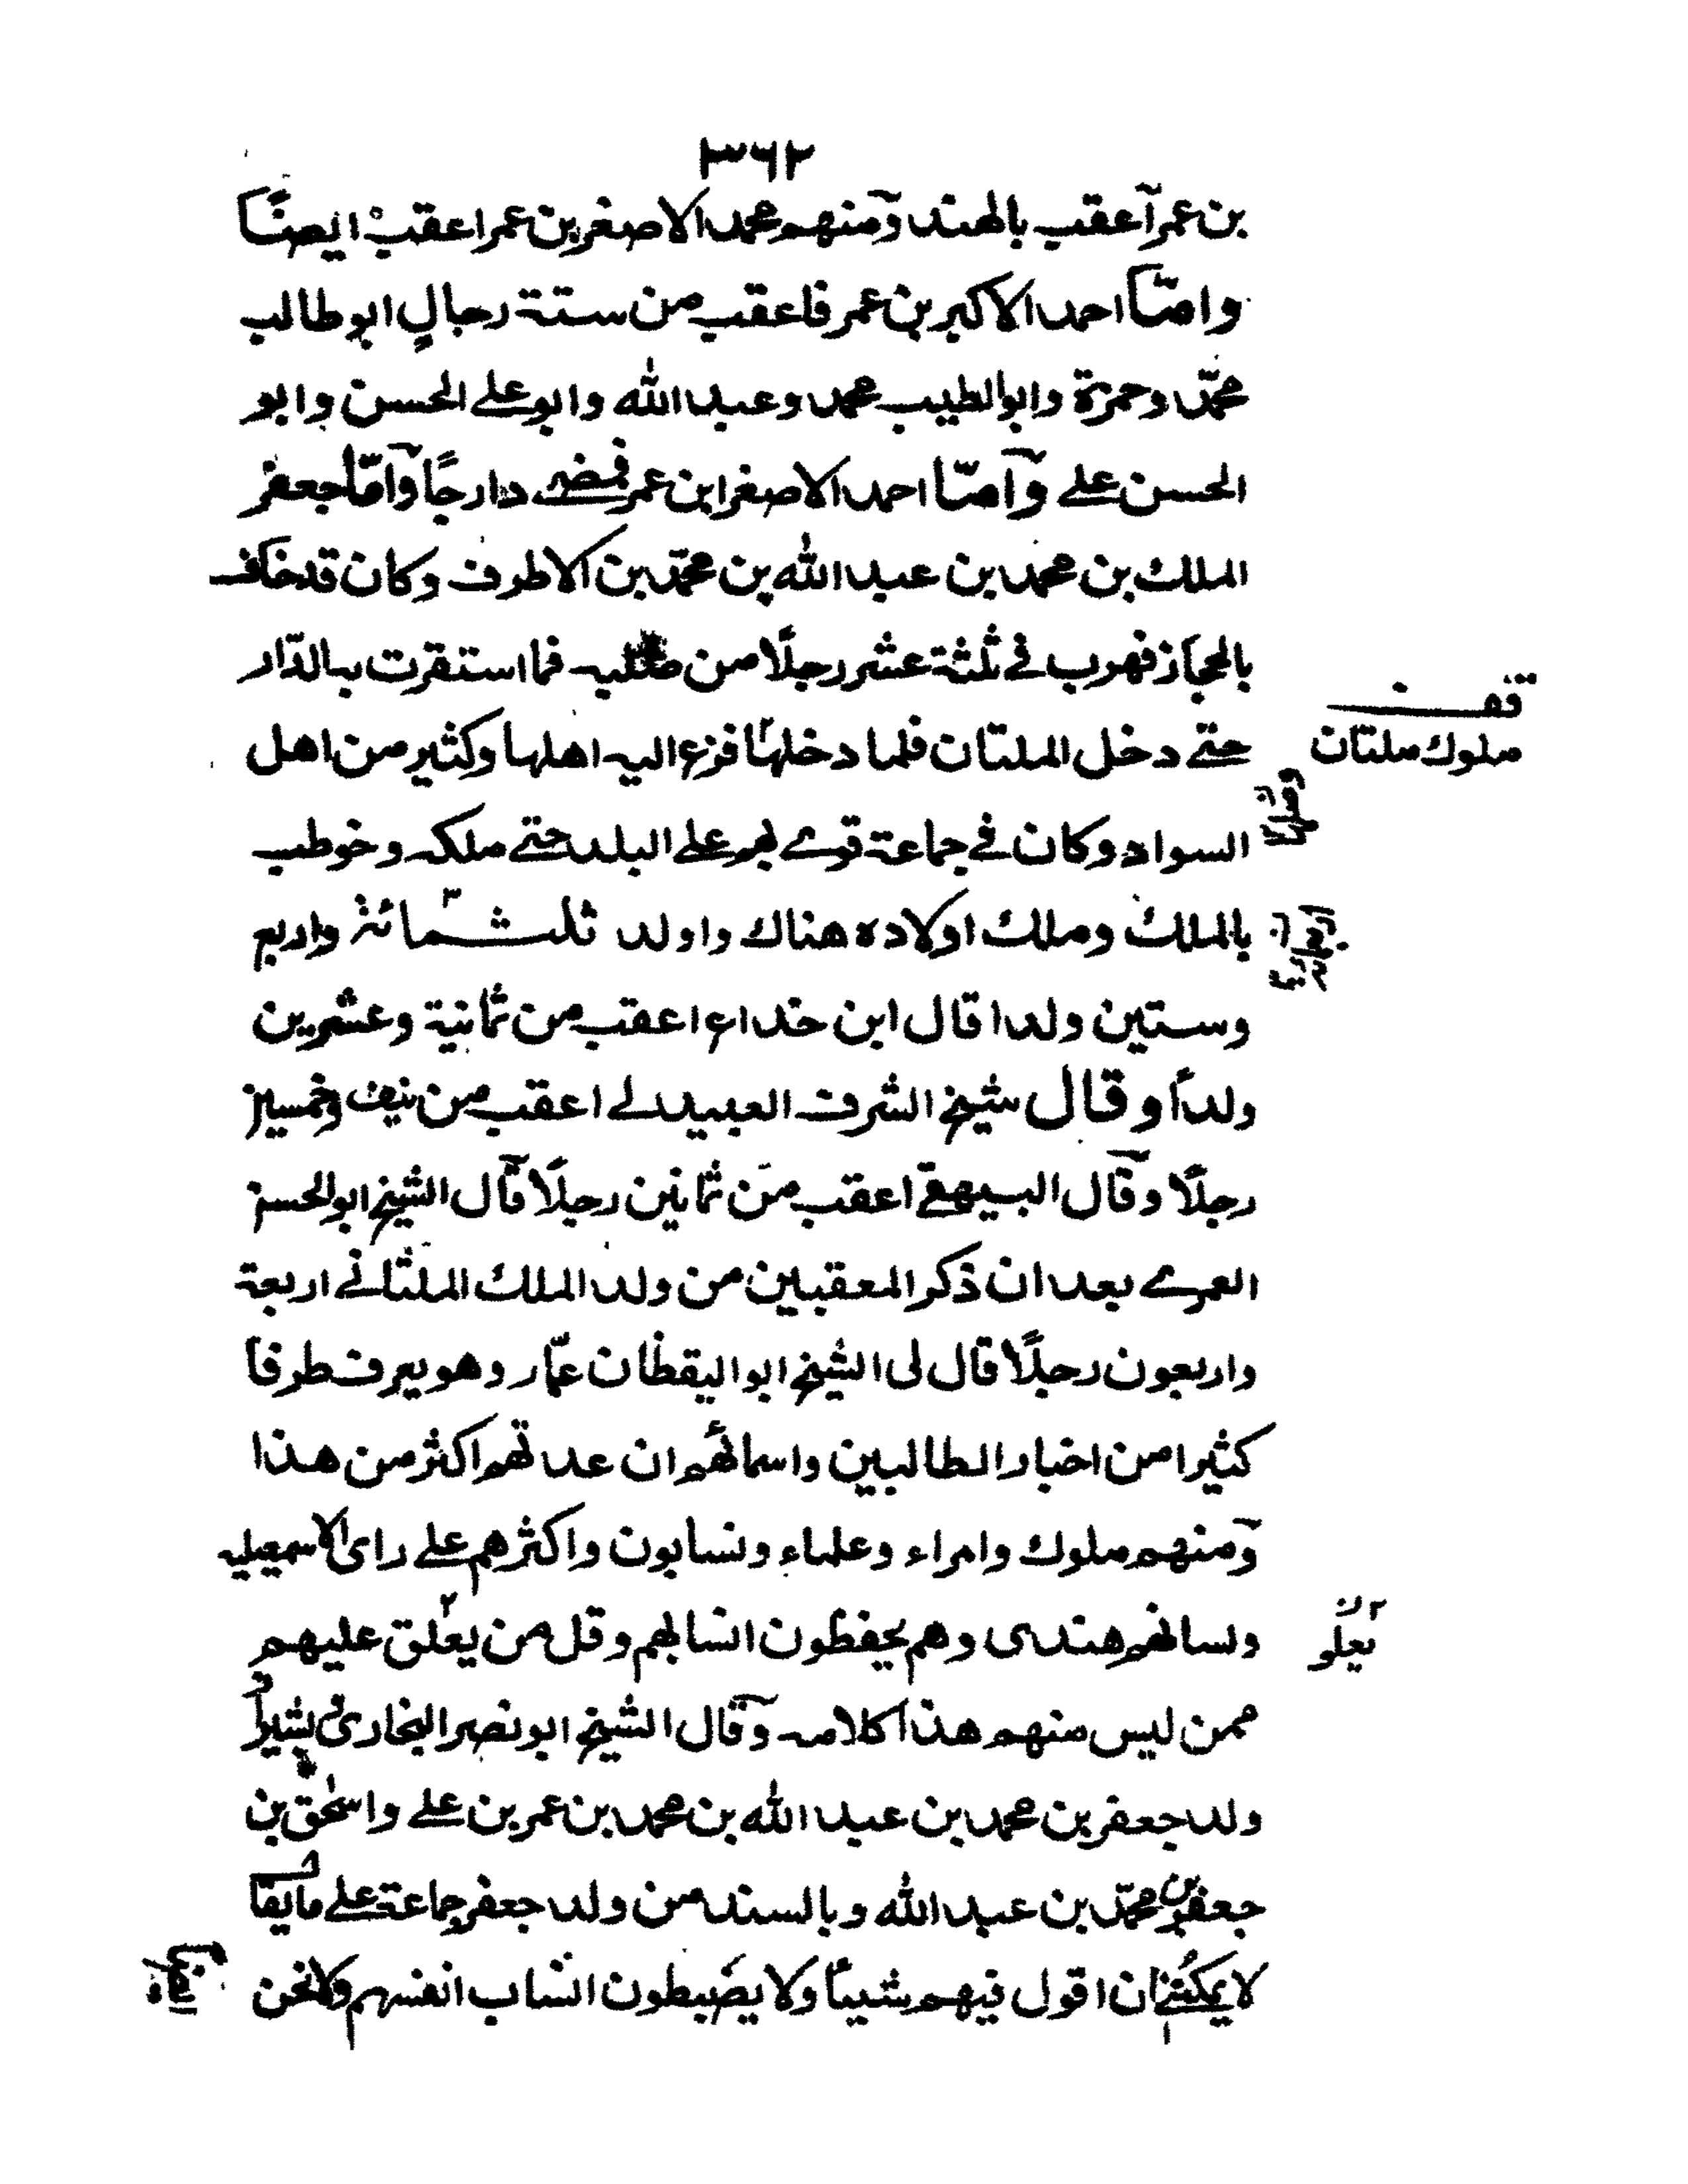 ٣٦٢
بن عمر اعقب بالهند ومنهم محمد الاصغر بن عمر اعقب ايضًا
وامّا احمد الاكبر بن عمر فاعقب من ستة رجالٍ ابو طالب
محمّد وحمزة وابو الطيب محمد وعبد الله وابو علے الحسن وابو
الحسن علے وامّا احمد الاصغر ابن عمر فمضے دارجًا وامّا جعفر
الملك بن محمد بن عبد الله بن محمّد بن الاطرف وكان قد خاف
بالحجاز فهرب فے ثلثة عشر رجلًا من صلبه فما استقرت به الدّار
حتے دخل الملتان فلما دخلها فزع اليه اهلها وكثير من اهل
قف
ملوك ملتان
السواد وكان فے جماعة قوے بهم علے البلد حتے ملكه وخوطب
بالملك وملك اولاده هناك واولد ثلثمائة واربع
وستين ولدا قال ابن خداع اعقب من ثمانية وعشرين
ولداً وقال شيخ الشرف العبيدلے اعقب من نيف وخمسين
رجلًا وقال البيهقے اعقب من ثمانين رجلًا قال الشيخ ابو الحسن
العمرے بعد ان ذكر المعقبين من ولد الملك الملتانے اربعة
واربعون رجلًا قال لى الشيخ ابو اليقظان عمّار وهو يعرف طرفا
كثيرا من اخبار الطالبين واسمائهم ان عدتهم اكثر من هذا
ومنهم ملوك وامراء وعلماء ونسابون واكثرهم علے راى الاسمعيليه
ولسانهم هندى وهم يحفظون انسابهم وقل من يعلق عليهم
يعلو
ممن ليس منهم هذا كلامه وقال الشيخ ابو نصر البخارى
ولد جعفر بن محمد بن عبد الله بن محمد بن عمر بن علے واسحٰق بن
جعفر بن محمّد بن عبد الله وبالسند من ولد جعفر جماعة علے ما يقال
لا يمكننے ان اقول فيهم شيئًا ولا يضبطون انساب انفسهم ولا نحن